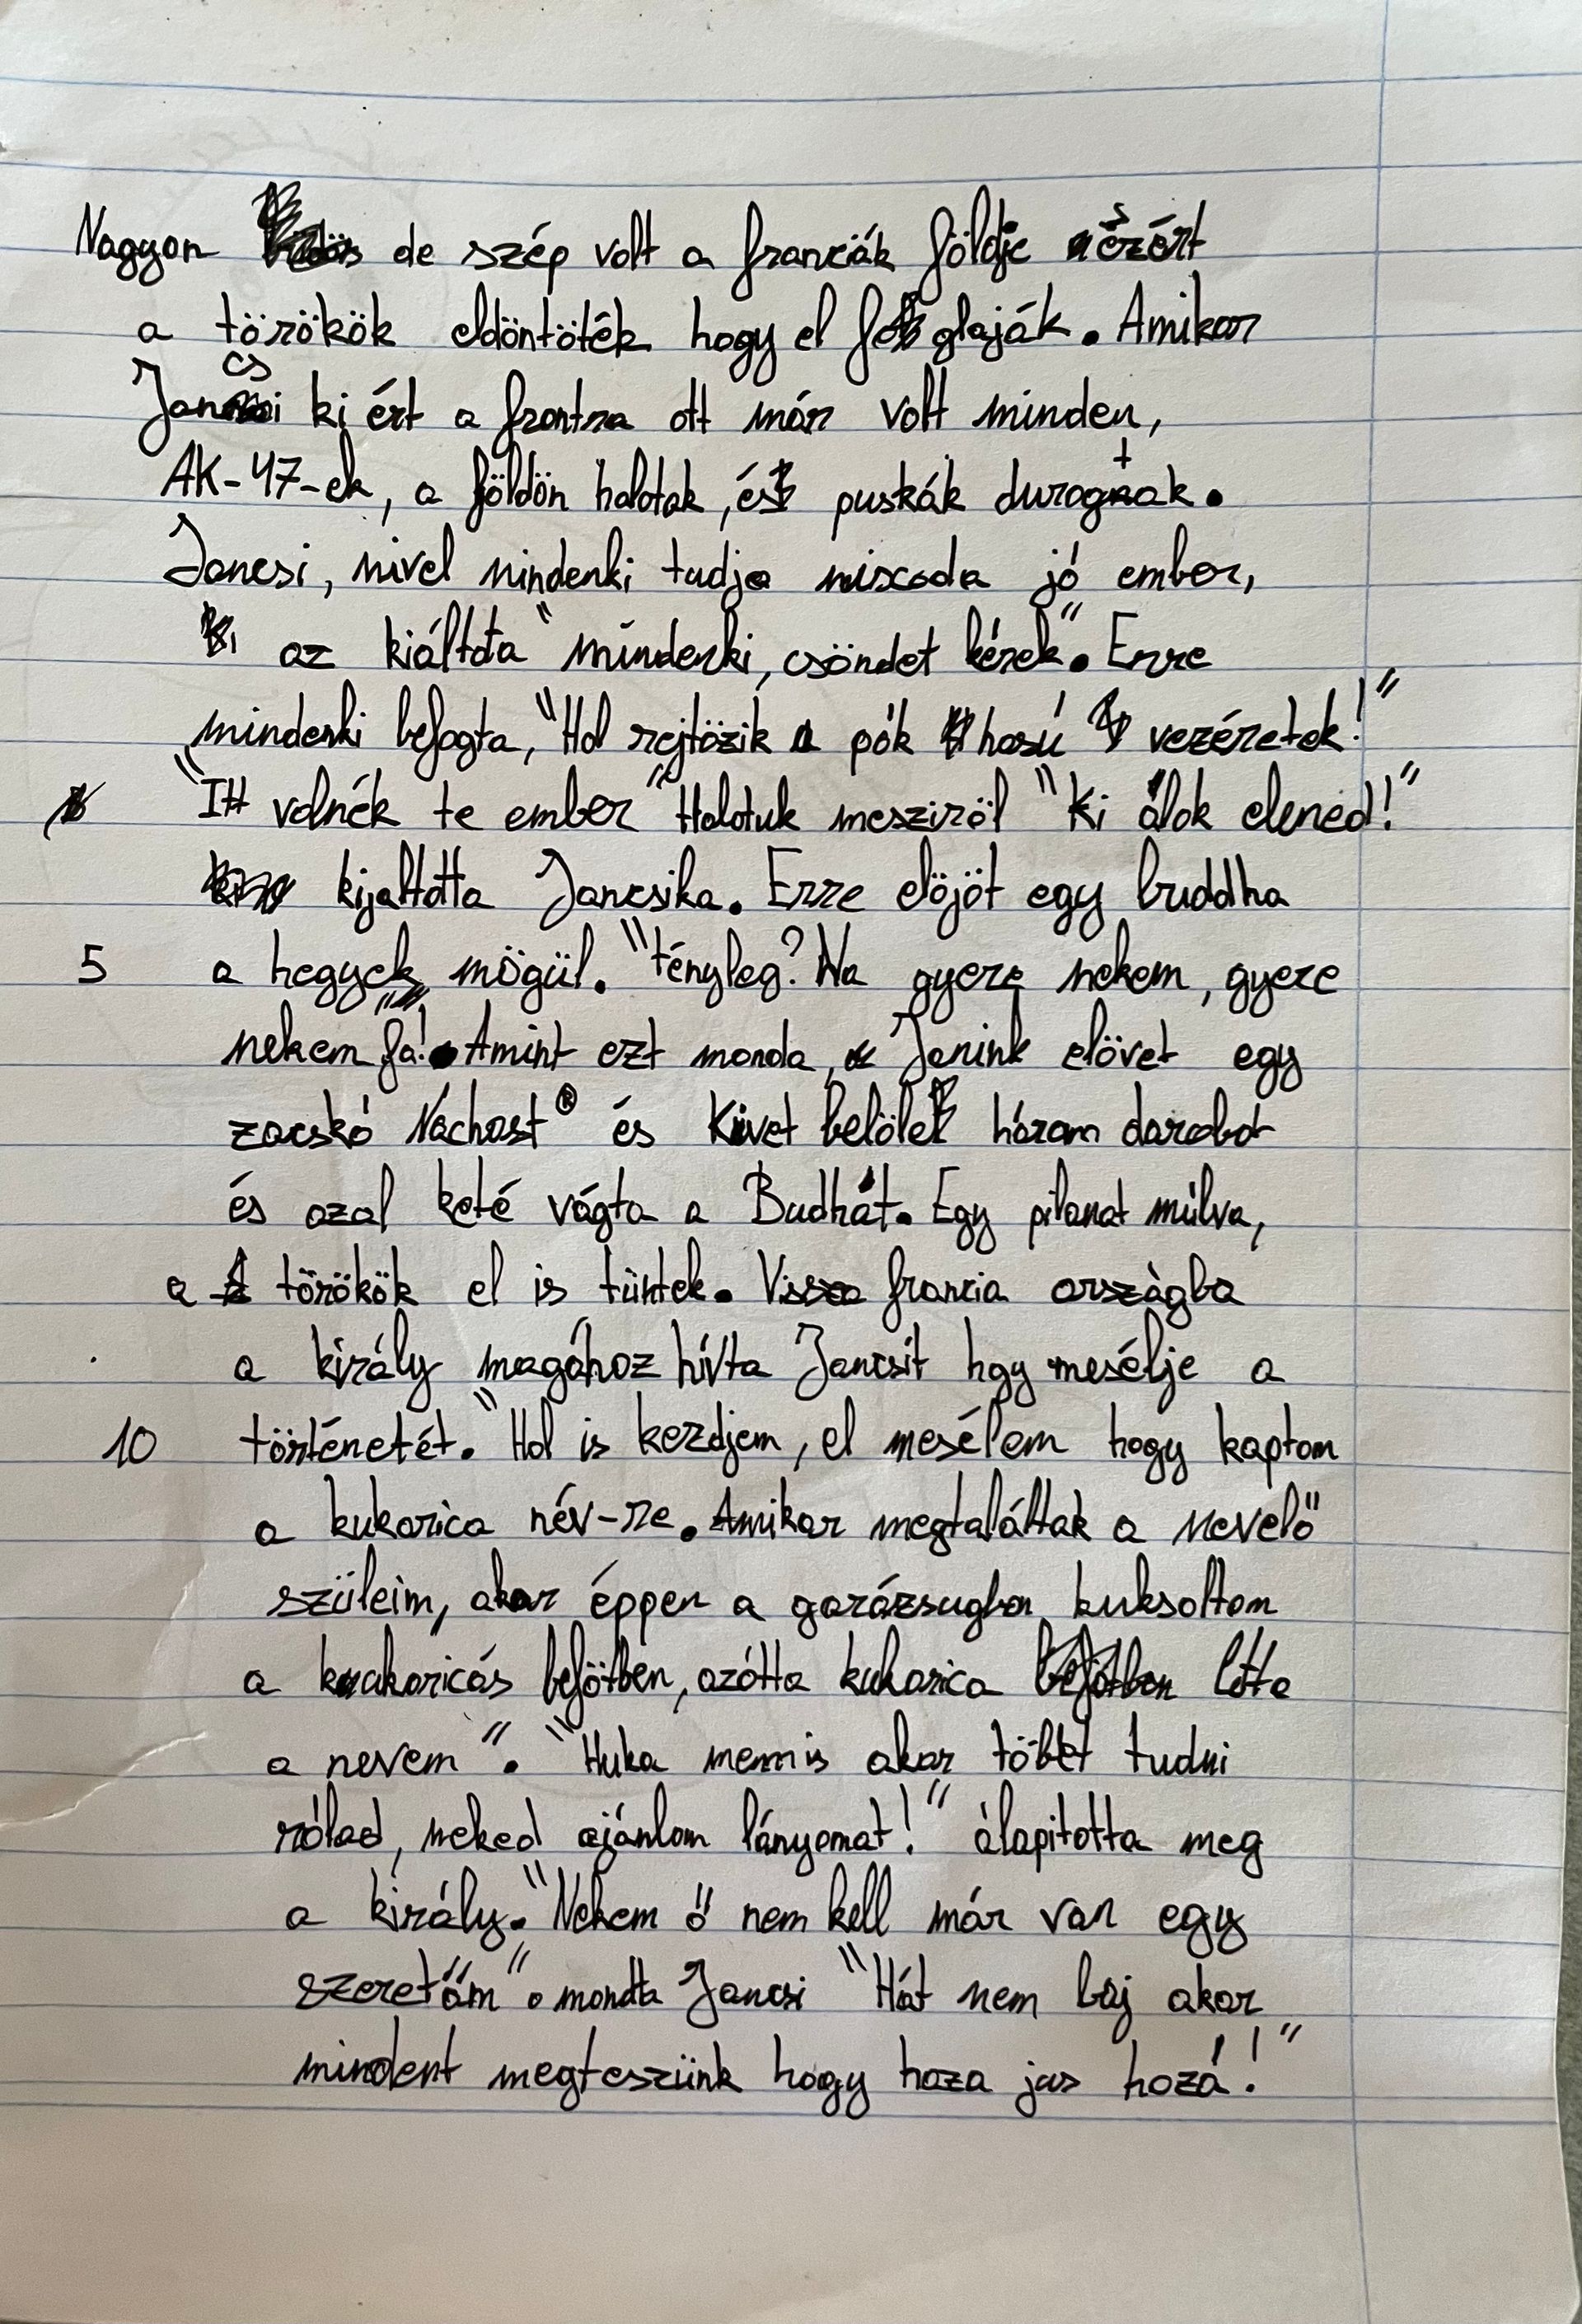 Nagyon de szép volt a franciák földje ezért
a törökök eldöntöték hogy el foglaják. Amikor
Jancsi ki ért a frontra ott már volt minden,
AK-47-ek, a földön halotak, és puskák durogtak.
Jancsi, mivel mindenki tudja miscoda jó ember,
az kiáltota "mindenki, csöndet kérek". Erre
mindenki befogta, "Hol rejtözik a pók hasú vezéretek!"
"Itt volnék te ember" Halotuk mesziröl "Ki álok elened!"
kijaltotta Jancsika. Erre elöjöt egy buddha
5 a hegyek mögül. "tényleg? Na gyere nekem, gyere
nekem fa!" Amint ezt monda, Janink elövet egy
zacskó Nachost® és Kivet belöle három darabot
és azal keté vágta a Budhát. Egy pilanat múlva,
a törökök el is tüntek. Vissza francia országba
a király magához hívta Jancsit hgy mesélje a
10 történetét. "Hol is kezdjem, el mesélem hogy kaptam
a kukorica név-re. Amikor megtaláltak a nevelő
szüleim, akor éppen a garázsugban kuksoltam
a kukoricás beföttben, azótta kukorica lötte
a nevem". "Huka mennis akar töbet tudni
rólad, neked ajánlom lányomat!" álapitotta meg
a király. "Nekem ő nem kell már van egy
szeretőm". mondta Jancsi "Hát nem baj akor
mindent megteszünk hogy haza jus hozá!"